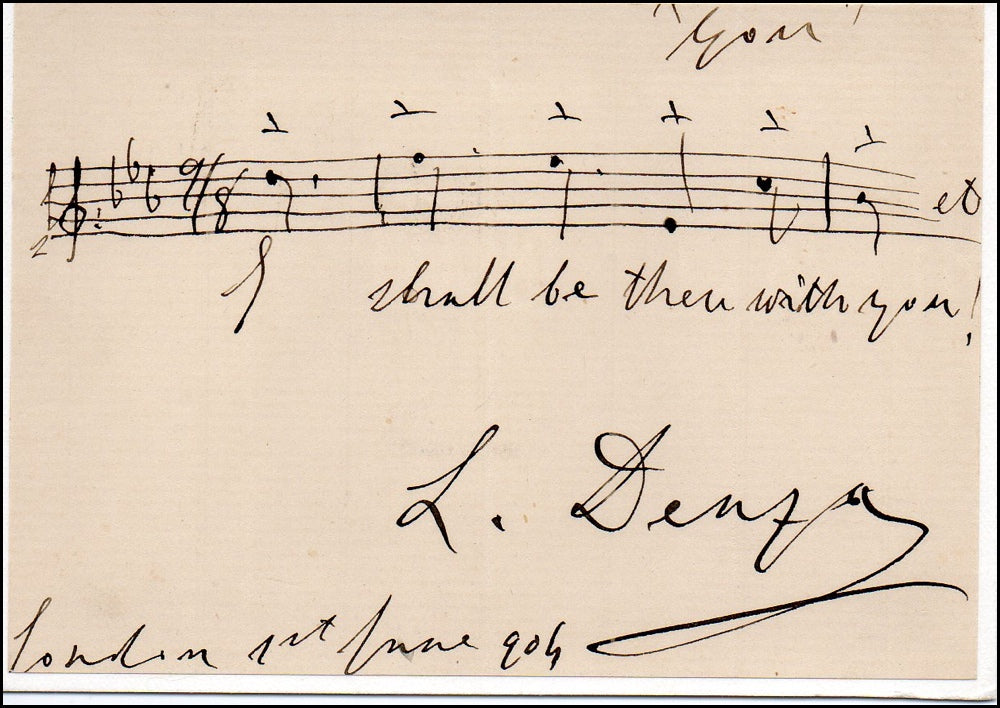 "You"
9/8
et
I shall be then with you!
L. Denza
London 1st June 904